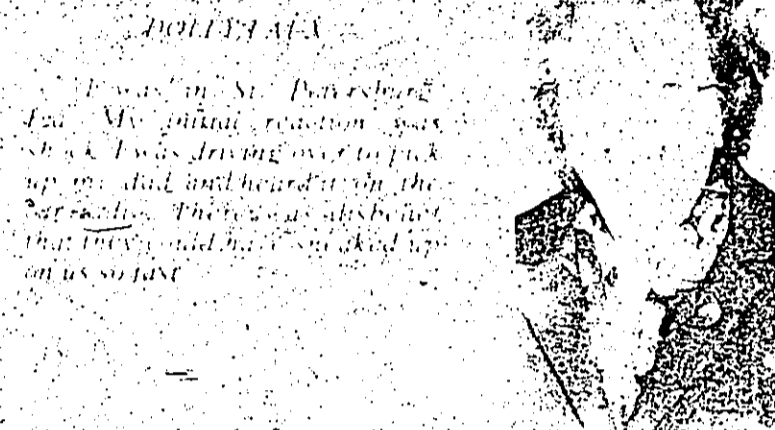 I was in St. Petersburg
Fla. My initial reaction was
shock. I was driving over to pick
up my dad and heard it on the
car radio. There was disbelief
that they could have sneaked up
on us so fast